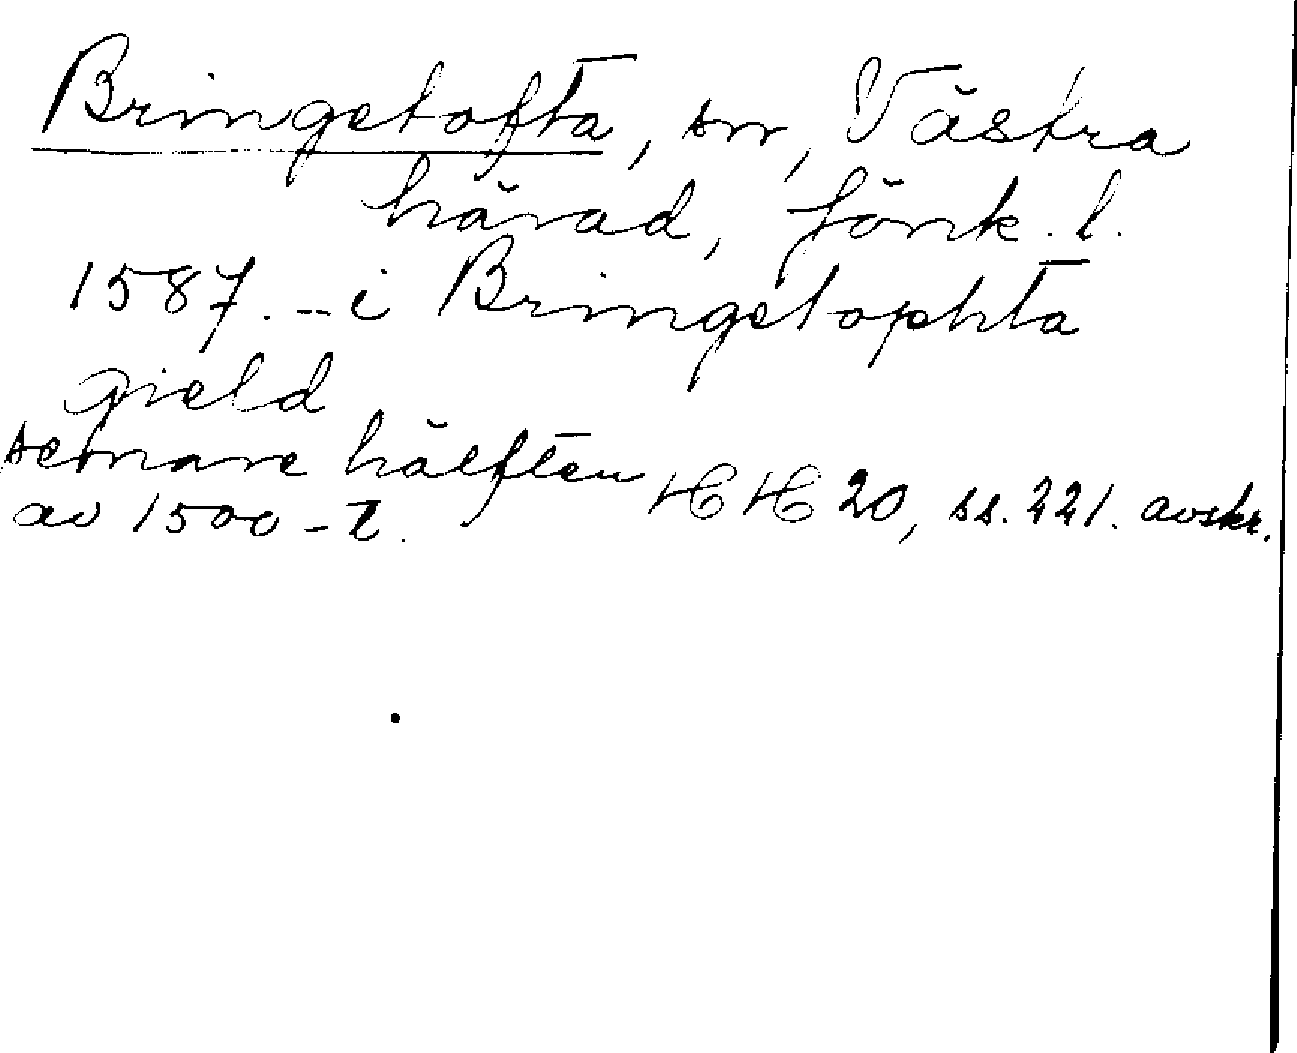 Bringetofta, sn, Västra
härad, Jönk. l.
1587. -- i Bringetophta
gield
senare hälften
av 1500-t. HH 20, ss. 221. avskr.